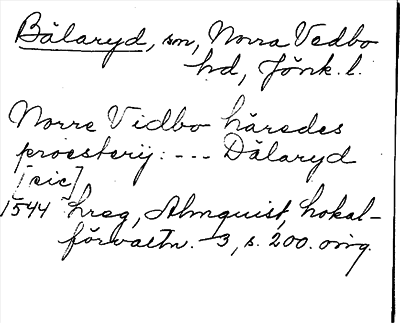 Bälaryd, sn, Norra Vedbo
hd, Jönk. l.
Norre Vidbo häredes
proesterij: --- Dälaryd
[sic]
1544 hreg, Almquist, Lokal-
förvaltn. 3, s. 200. orig.